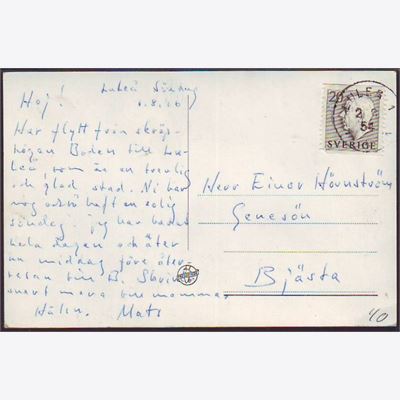 Luleå Söndag
Hej!
Har flytt från skräp-
högen Boden till Lu-
leå, som är en trevlig
och glad stad. Ni har
nog också haft en solig
söndag. Jag har badat
hela dagen och äter
nu middag före åter-
resan till B. Skriv
snart mera till mamma.
Hälsn. Mats
20
2
54
SVERIGE
Herr Einar Hörnström
Genesön
Bjästa
40